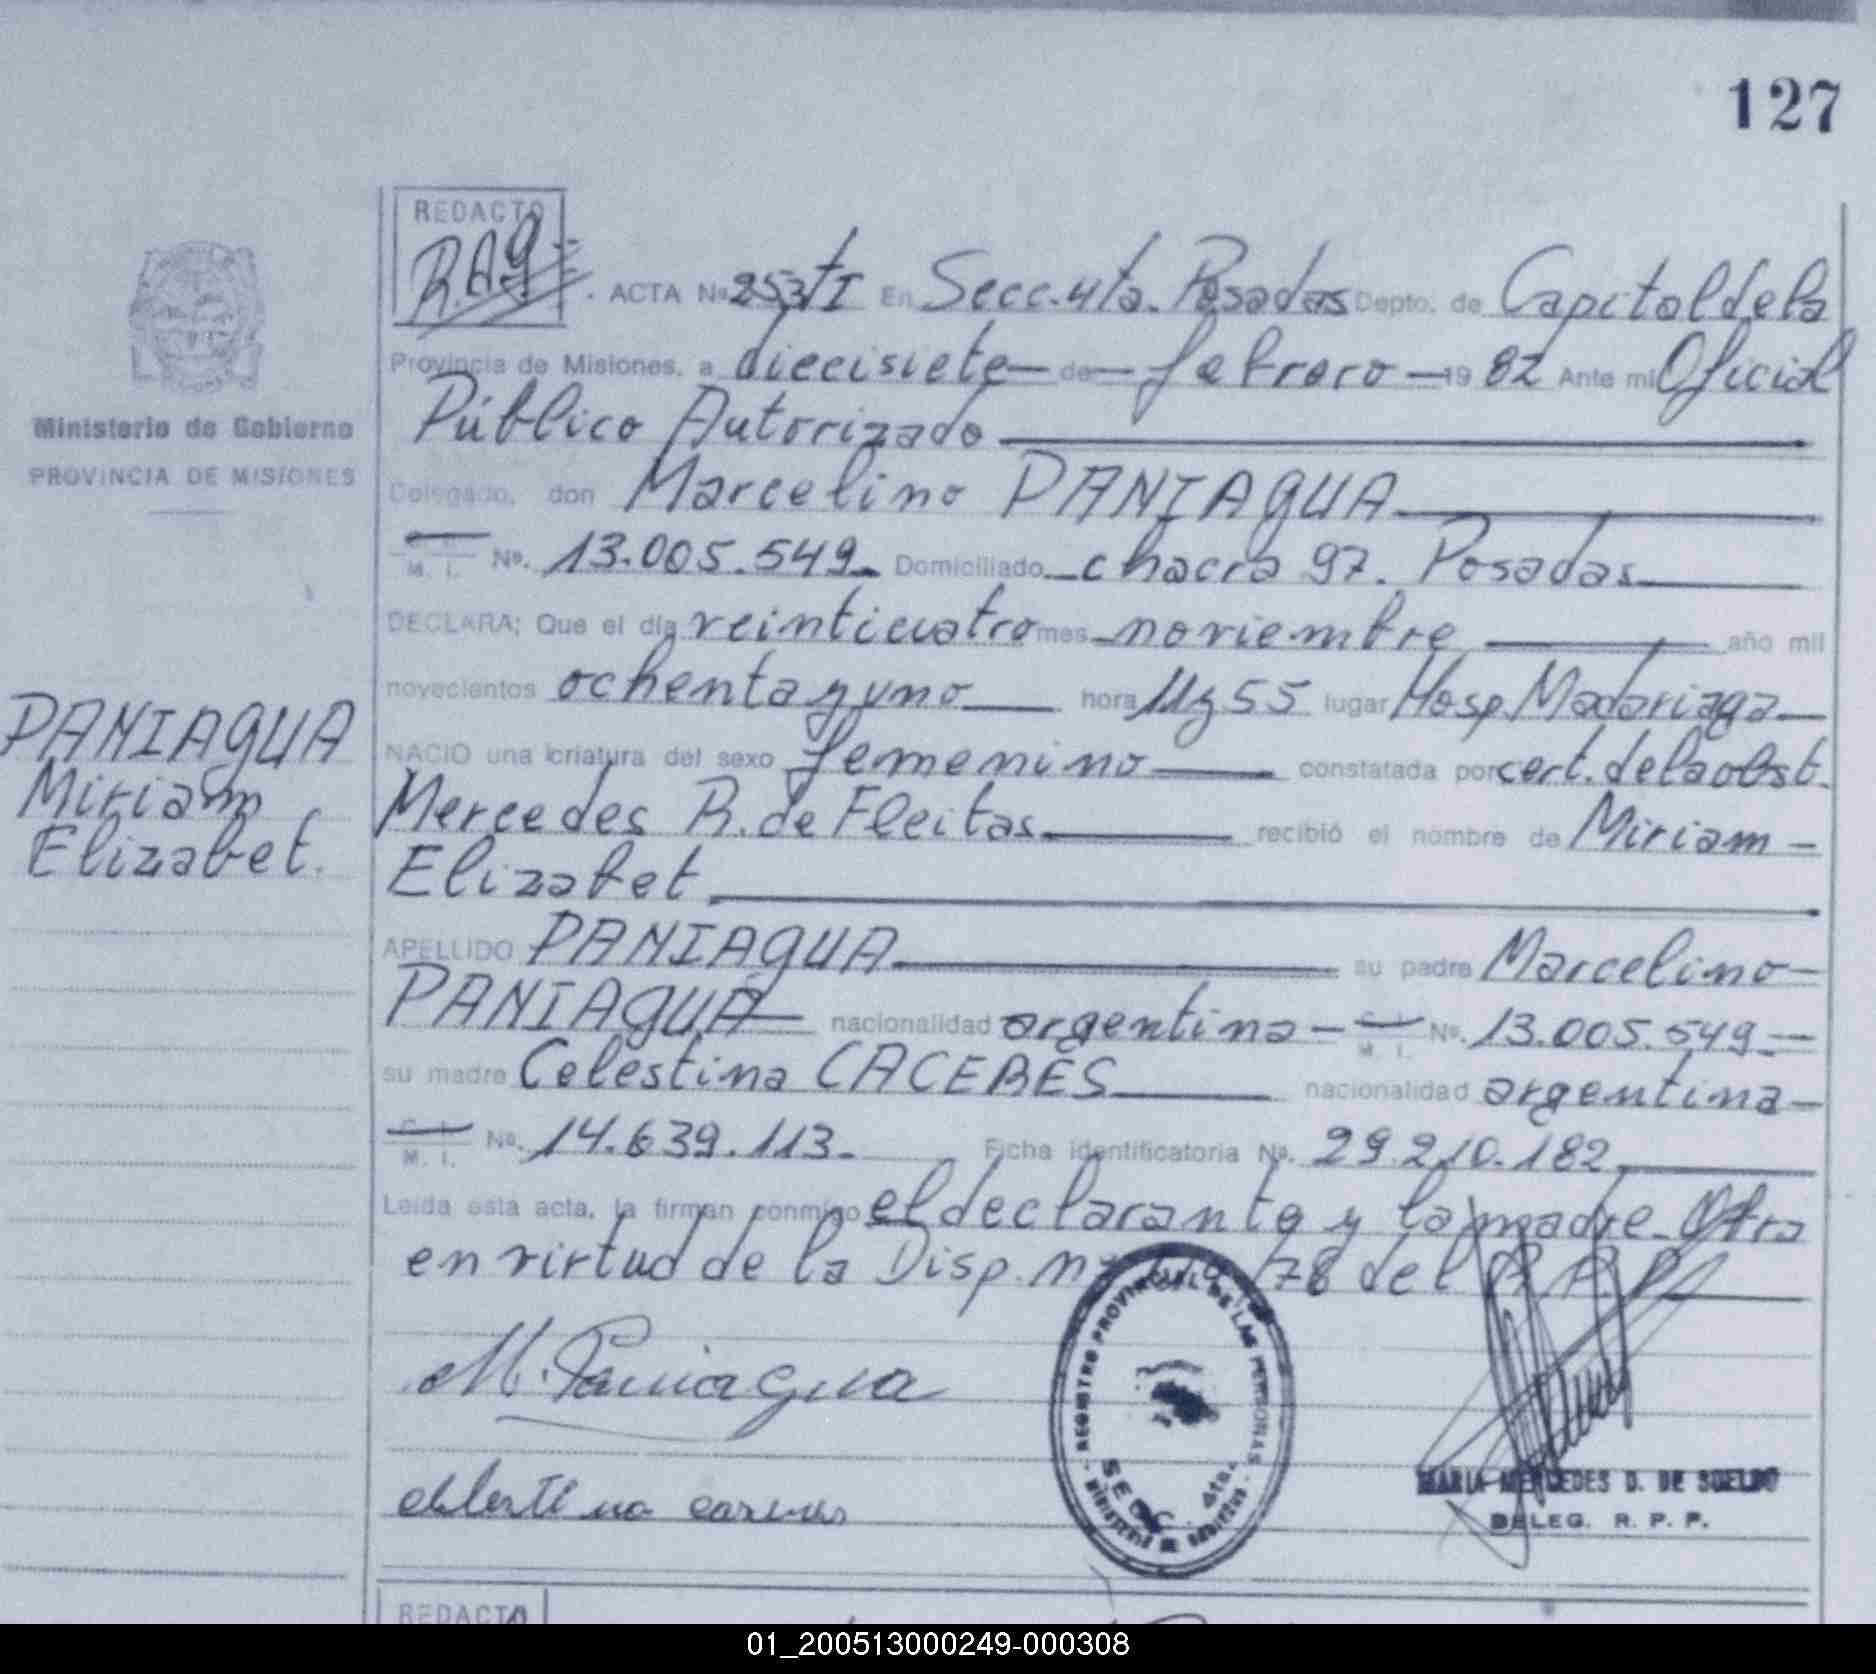 127
REDACTO
R.A.g
ACTA Nº 253 tI En Secc. 4ta. Posadas Depto. de Capital de la
Provincia de Misiones, a diecisiete de febrero 19 82 Ante mi Oficial
Público Autorizado
Delegado, don Marcelino PANIAGUA
M. I. Nº. 13.005.549 Domiciliado chacra 97. Posadas
DECLARA; Que el día veinticuatro mes noviembre año mil
novecientos ochenta y uno hora 11 y 55 lugar Hosp. Madariaga
NACIO una criatura del sexo femenino constatada por cert. de la obst.
Mercedes R. de Fleitas recibió el nombre de Miriam
Elizabet
APELLIDO PANIAGUA su padre Marcelino
PANIAGUA nacionalidad argentina M. I. Nº. 13.005.549
su madre Celestina CACERES nacionalidad argentina
M. I. Nº. 14.639.113. Ficha identificatoria Nº. 29.210.182
Leída esta acta, la firman conmigo el declarante y la madre.
en virtud de la Disp. 78 del R.P.P.
M. Paniagua
Ministerio de Gobierno
PROVINCIA DE MISIONES
PANIAGUA
Miriam
Elizabet.
REGISTRO PROVINCIAL DE LAS PERSONAS
SECC. 4ta.
MARIA MERCEDES D. DE SUELDO
DELEG. R. P. P.
REDACTO
01_200513000249-000308